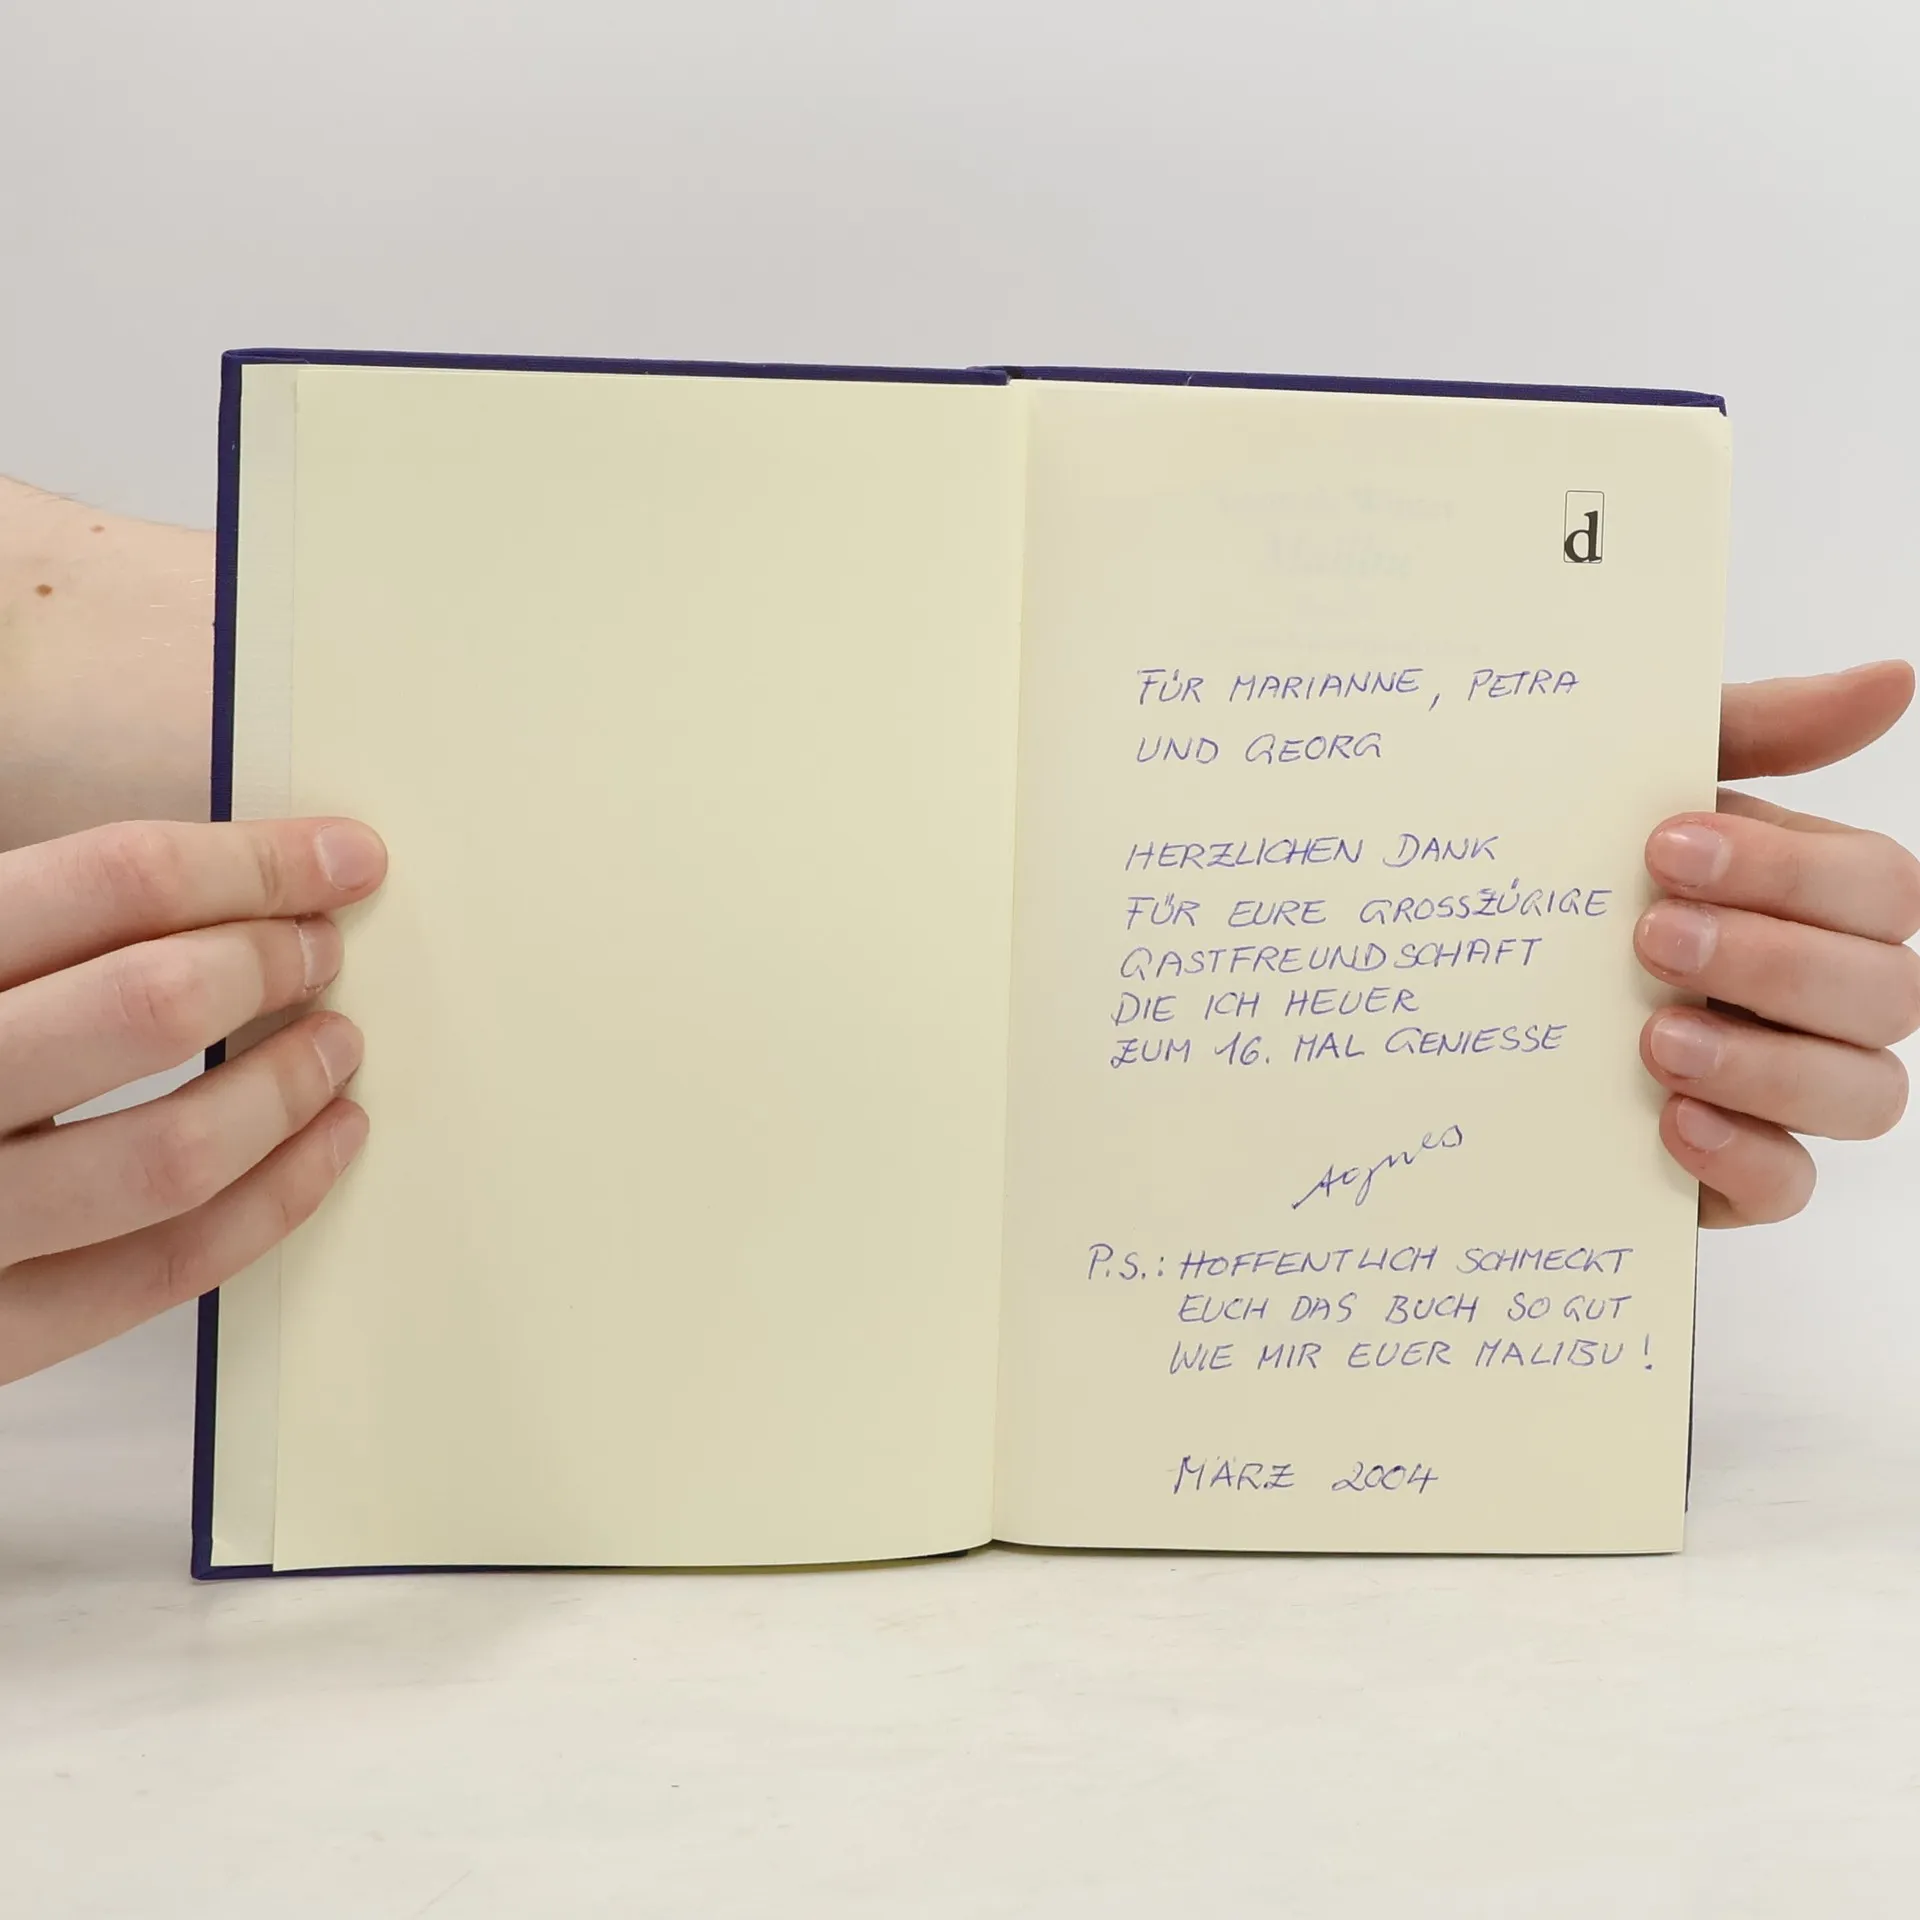 d
FÜR MARIANNE, PETRA
UND GEORG
HERZLICHEN DANK
FÜR EURE GROSSZÜGIGE
GASTFREUNDSCHAFT
DIE ICH HEUER
ZUM 16. MAL GENIESSE
Agnes
P.S.: HOFFENTLICH SCHMECKT
EUCH DAS BUCH SO GUT
WIE MIR EUER MALIBU!
MÄRZ 2004